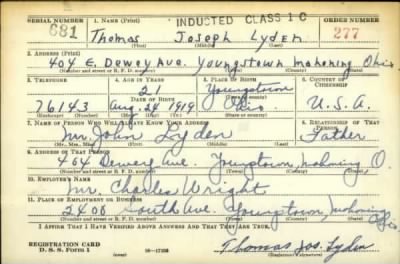 SERIAL NUMBER 1. NAME (Print) INDUCTED CLASS 1C ORDER NUMBER
681 Thomas Joseph Lyden 277
(First) (Middle) (Last)
2. ADDRESS (Print)
404 E. Dewey Ave. Youngstown Mahoning Ohio
(Number and street or R. F. D. number) (Town) (County) (State)
3. TELEPHONE 4. AGE IN YEARS 5. PLACE OF BIRTH 6. COUNTRY OF CITIZENSHIP
21 Youngstown
DATE OF BIRTH (Town or county)
76143 Aug. 24 1919 Ohio. U.S.A.
(Mo.) (Day) (Yr.) (State or country)
7. NAME OF PERSON WHO WILL ALWAYS KNOW YOUR ADDRESS 8. RELATIONSHIP OF THAT PERSON
Mr. John Lyden Father
(Mr., Mrs., Miss) (First) (Middle) (Last)
9. ADDRESS OF THAT PERSON
404 Dewey Ave. Youngstown, Mahoning, O.
(Number and street or R. F. D. number) (Town) (County) (State)
10. EMPLOYER'S NAME
Mr. Charles Wright
11. PLACE OF EMPLOYMENT OR BUSINESS
2400 South Ave. Youngstown, Mahoning Ohio.
(Number and street or R. F. D. number) (Town) (County) (State)
I AFFIRM THAT I HAVE VERIFIED ABOVE ANSWERS AND THAT THEY ARE TRUE.
REGISTRATION CARD
D. S. S. Form 1 16—17105 Thomas Jos. Lyden
(Registrant's signature)